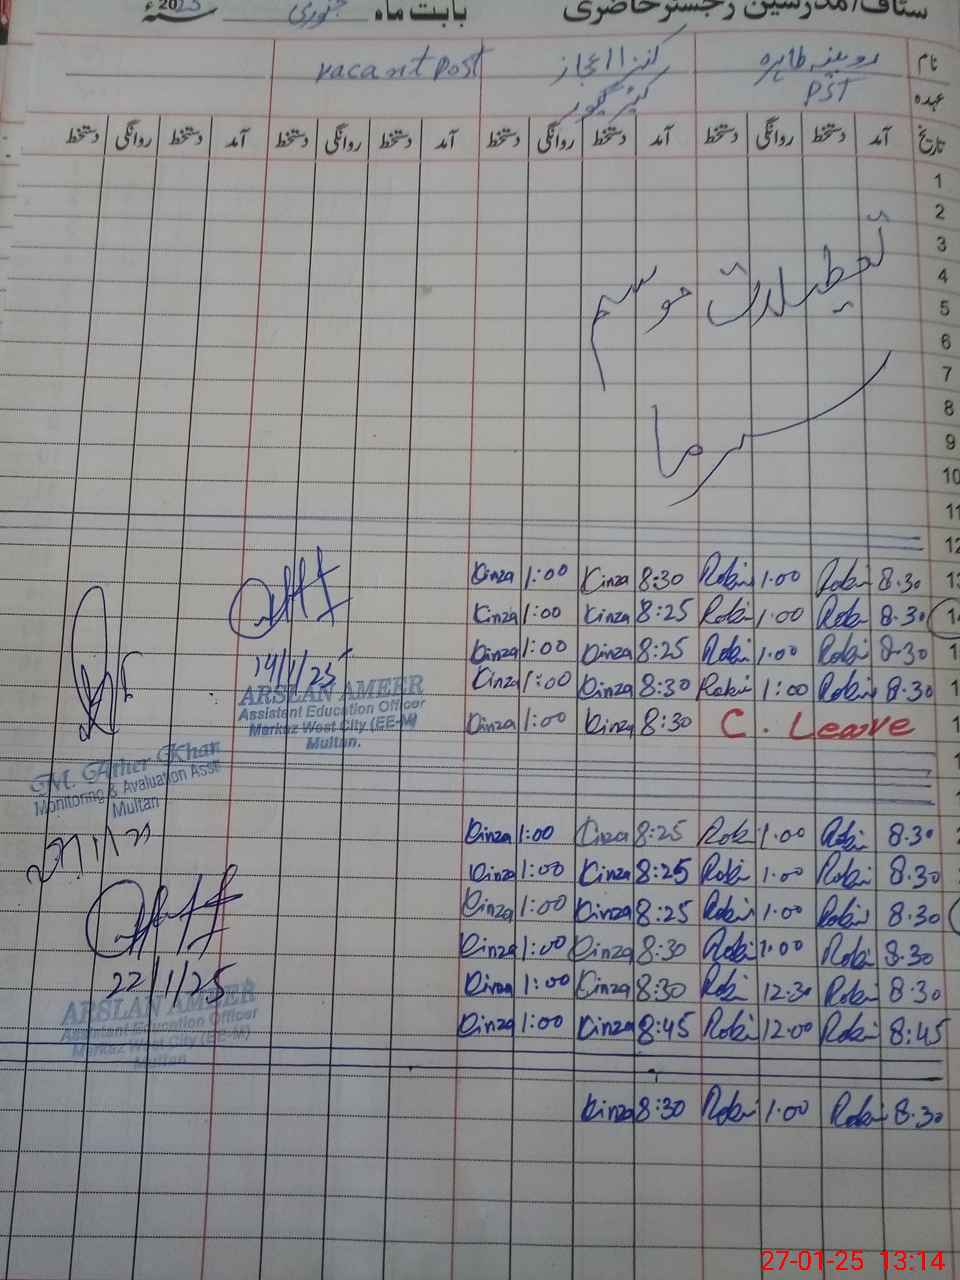 سٹاف/مدرسین رجسٹر حاضری بابت ماہ جنوری 2025 سنہء
نام روبینہ طاہرہ کنزا اعجاز vacant post
عہدہ PST
تاریخ آمد دستخط روانگی دستخط آمد دستخط روانگی دستخط آمد دستخط روانگی دستخط آمد دستخط روانگی دستخط
1
2
3
4
5
6
7
8
9
10
11
12
تعطیلات موسم
سرما
Kinza 1:00 Kinza 8:30 Robi 1.00 Robi 8.30
Kinza 1:00 Kinza 8:25 Robi 1.00 Robi 8.30
Kinza 1:00 Kinza 8:25 Robi 1.00 Robi 8.30
Kinza 1:00 Kinza 8:30 Robi 1:00 Robi 8.30
Kinza 1:00 Kinza 8:30 C. Leave
14/1/25
ARSLAN AMEER
Assistent Education Officer
Markaz West City (EE-M)
Multan.
M. Ather Khan
Monitoring & Evaluation Asst
Multan
Kinza 1:00 Kinza 8:25 Robi 1.00 Robi 8.30
Kinza 1:00 Kinza 8:25 Robi 1.00 Robi 8.30
Kinza 1:00 Kinza 8:25 Robi 1.00 Robi 8.30
Kinza 1:00 Kinza 8:30 Robi 1:00 Robi 8.30
Kinza 1:00 Kinza 8:30 Robi 12.30 Robi 8.30
Kinza 1:00 Kinza 8:45 Robi 12:00 Robi 8:45
22/1/25
ARSLAN AMEER
Assistent Education Officer
Markaz West City (EE-M)
Multan
Kinza 8:30 Robi 1.00 Robi 8.30
27-01-25 13:14